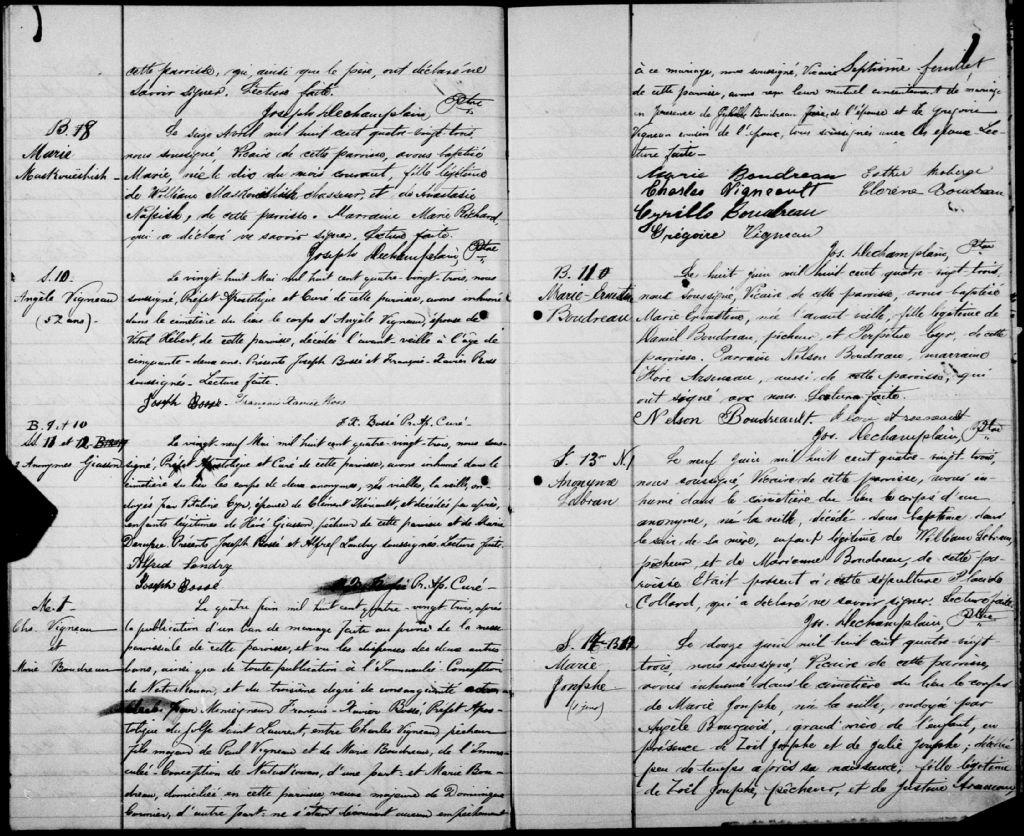 cette paroisse, qui, ainsi que le père, ont déclaré ne
savoir signer. Lecture faite.
Joseph Dechamplain, Ptre
B. 8
Marie
Maskouëshish -
Le seize Avril mil huit cent quatre-vingt trois,
nous soussigné, Vicaire de cette paroisse, avons baptisé
Marie, née le dix du mois courant, fille légitime
de William chasseur, et de Anastasie
Napish, de cette paroisse. Marraine Marie Richard,
qui a déclaré ne savoir signer. Lecture faite.
Joseph Dechamplain, Ptre
S. 10.
Angèle Vigneau
(52 ans) -
Le vingt-huit Mai mil huit cent quatre-vingt-trois, nous
soussigné, Préfet Apostolique et Curé de cette paroisse, avons inhumé
dans le cimetière du lieu le corps d'Angèle Vigneau, épouse de
Vital Hébert, de cette paroisse, décédée l'avant-veille à l'âge de
cinquante-deux ans. Présents Joseph Bossé et François-Xavier
soussignés - Lecture faite.
Joseph Bossé - François Xavier
F. X. Bossé Pr. Ap. Curé -
B. 9 et 10
SS. 11 et 12
2 Anonymes Giasson
Le vingt-neuf Mai mil huit cent quatre-vingt-trois, nous sous-
signé, Préfet Apostolique et Curé de cette paroisse, avons inhumé dans le
cimetière du lieu les corps de deux anonymes, nés la veille, on-
doyés par Vitaline Cyr, épouse de Clément Thériault, et décédés peu après,
enfants légitimes de Giasson, pêcheur de cette paroisse et de Marie
Présents Joseph Bossé et Alfred Landry soussignés. Lecture faite.
Alfrid Landry
Joseph Bossé
Pr. Ap. Curé -
M. 1
Chs. Vigneau
et
Marie Boudreau
Le quatre juin mil huit cent quatre-vingt trois, après
la publication d'un ban de mariage faite au prône de la messe
paroissiale de cette paroisse, et vu les dispenses des deux autres
bans, ainsi que de toute publication à l'Immaculée Conception
de Natashkouan, et du troisième degré de consanguinité
par Monseigneur François-Xavier Bossé, Préfet Apos-
tolique du Golfe Saint Laurent, entre Charles Vigneau, pêcheur
fils majeur de Paul Vigneau et de Marie Boudreau, de l'Imma-
culée Conception de Natashkouan, d'une part - et Marie Bou-
dreau, domiciliée en cette paroisse veuve majeure de Dominique
Cormier, d'autre part - ne s'étant découvert aucun empêchement
Septième feuillet
à ce mariage, nous soussigné, Vicaire
de cette paroisse, avons reçu leur mutuel consentement de mariage
en présence de Boudreau frère de l'épouse et de Grégoire
Vigneau cousin de l'époux, tous soussignés avec les époux Lec-
ture faite -
Marie Boudreau
Esther
Charles Vigneault
Boudreau
Cyrille Boudreau
Grégoire Vigneau
Jos. Dechamplain, Ptre
B. 11
Marie-Ernestine
Boudreau
Le huit juin mil huit cent quatre-vingt trois,
nous soussigné, Vicaire de cette paroisse, avons baptisé
Marie Ernestine, née l'avant veille, fille légitime de
Daniel Boudreau, pêcheur, et Perpétue Cyr, de cette
paroisse. Parrain Nelson Boudreau, marraine
Flore Arseneau, aussi de cette paroisse, qui
ont signé avec nous. Lecture faite.
Nelson Boudreault.
Jos. Dechamplain, Ptre
S. 13
Anonyme
Lebran
Le neuf Juin mil huit cent quatre-vingt trois,
nous soussigné, Vicaire de cette paroisse, avons in-
humé dans le cimetière du lieu le corps d'un
anonyme, né la veille, décédé sans baptême dans
le sein de sa mère, enfant légitime de William
pêcheur, et de Boudreau, de cette pa-
roisse. Etait présent à cette sépulture Placide
Collard, qui a déclaré ne savoir signer. Lecture faite.
Jos. Dechamplain, Ptre
S. 14 - B. 12
Marie
Josephe
(1 jour)
Le douze juin mil huit cent quatre-vingt
trois, nous soussigné Vicaire de cette paroisse,
avons inhumé dans le cimetière du lieu le corps
de Marie Josephe, née la veille, ondoyée par
Angèle Bourgeois, grand'mère de l'enfant, en
présence de Zoïl Josephe et de Julie Josephe; décédée
peu de temps après sa naissance, fille légitime
de Zoïl Josephe, pêcheur, et de Justine Arseneau,